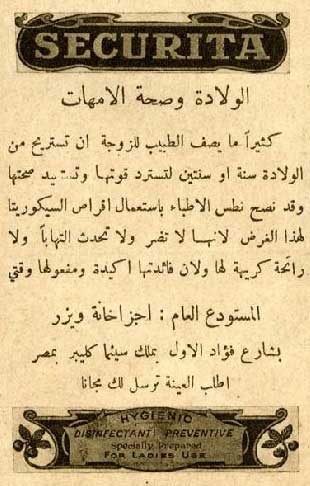 SECURITA
الولادة وصحة الامهات
كثيراً ما يصف الطبيب للزوجة ان تستريح من
الولادة سنة او سنتين لتسترد قوتها وتستعيد صحتها
وقد نصح نطس الاطباء باستعمال اقراص السيكوريتا
لهذا الغرض لانها لا تضر ولا تحدث التهاباً ولا
رائحة كريهة لها ولان فائدتها اكيدة ومفعولها وقتي
المستودع العام : اجزاخانة ويزر
بشارع فؤاد الاول بملك سينما كليبر بمصر
اطلب العينة ترسل لك مجانا
HYGIENIC
DISINFECTANT PREVENTIVE
Specially Prepared
FOR LADIES USE